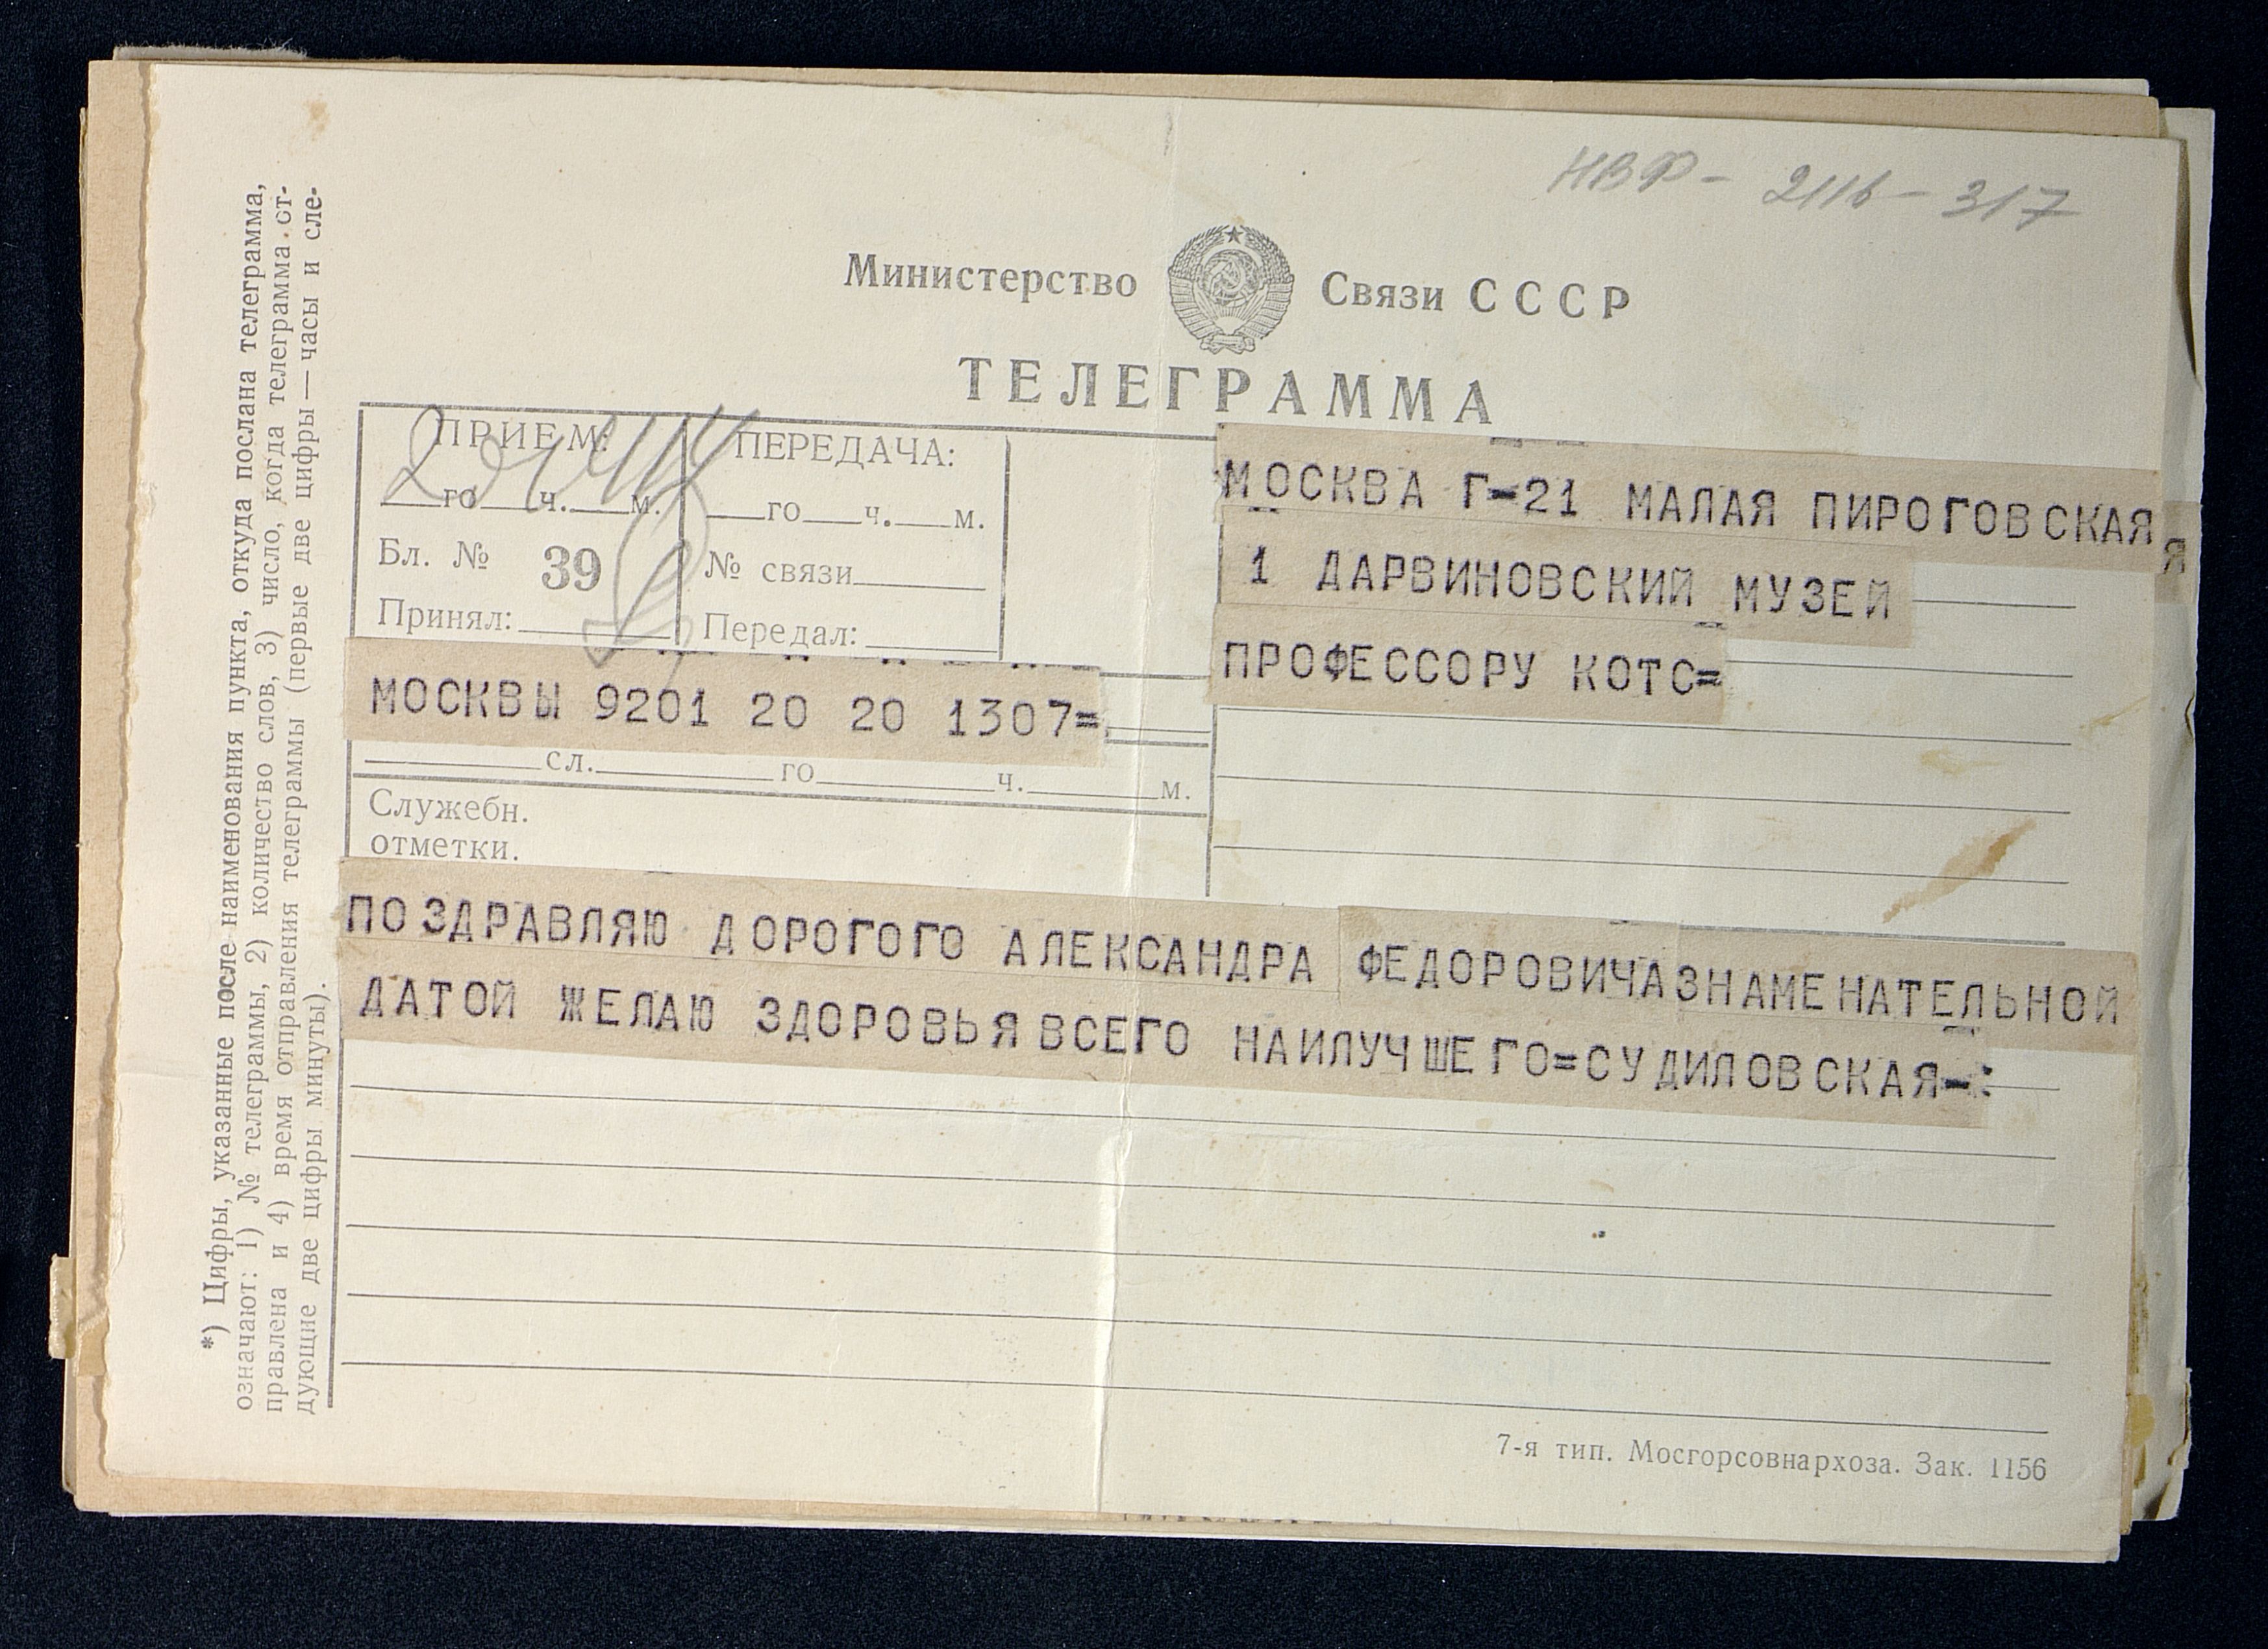 НВФ - 2116 - 317
Министерство Связи СССР
ТЕЛЕГРАММА
ПРИЕМ:
го ч. м.
Бл. № 39
Принял:
ПЕРЕДАЧА:
го ч. м.
№ связи
Передал:
МОСКВА Г-21 МАЛАЯ ПИРОГОВСКАЯ Я
1 ДАРВИНОВСКИЙ МУЗЕЙ
ПРОФЕССОРУ КОТС=
МОСКВЫ 9201 20 20 1307=
сл. го ч. м.
Служебн.
отметки.
ПОЗДРАВЛЯЮ ДОРОГОГО АЛЕКСАНДРА ФЕДОРОВИЧА ЗНАМЕНАТЕЛЬНОЙ
ДАТОЙ ЖЕЛАЮ ЗДОРОВЬЯ ВСЕГО НАИЛУЧШЕГО=СУДИЛОВСКАЯ-:
7-я тип. Мосгорсовнархоза. Зак. 1156
*) Цифры, указанные после наименования пункта, откуда послана телеграмма,
означают: 1) № телеграммы, 2) количество слов, 3) число, когда телеграмма от-
правлена и 4) время отправления телеграммы (первые две цифры — часы и сле-
дующие две цифры минуты).